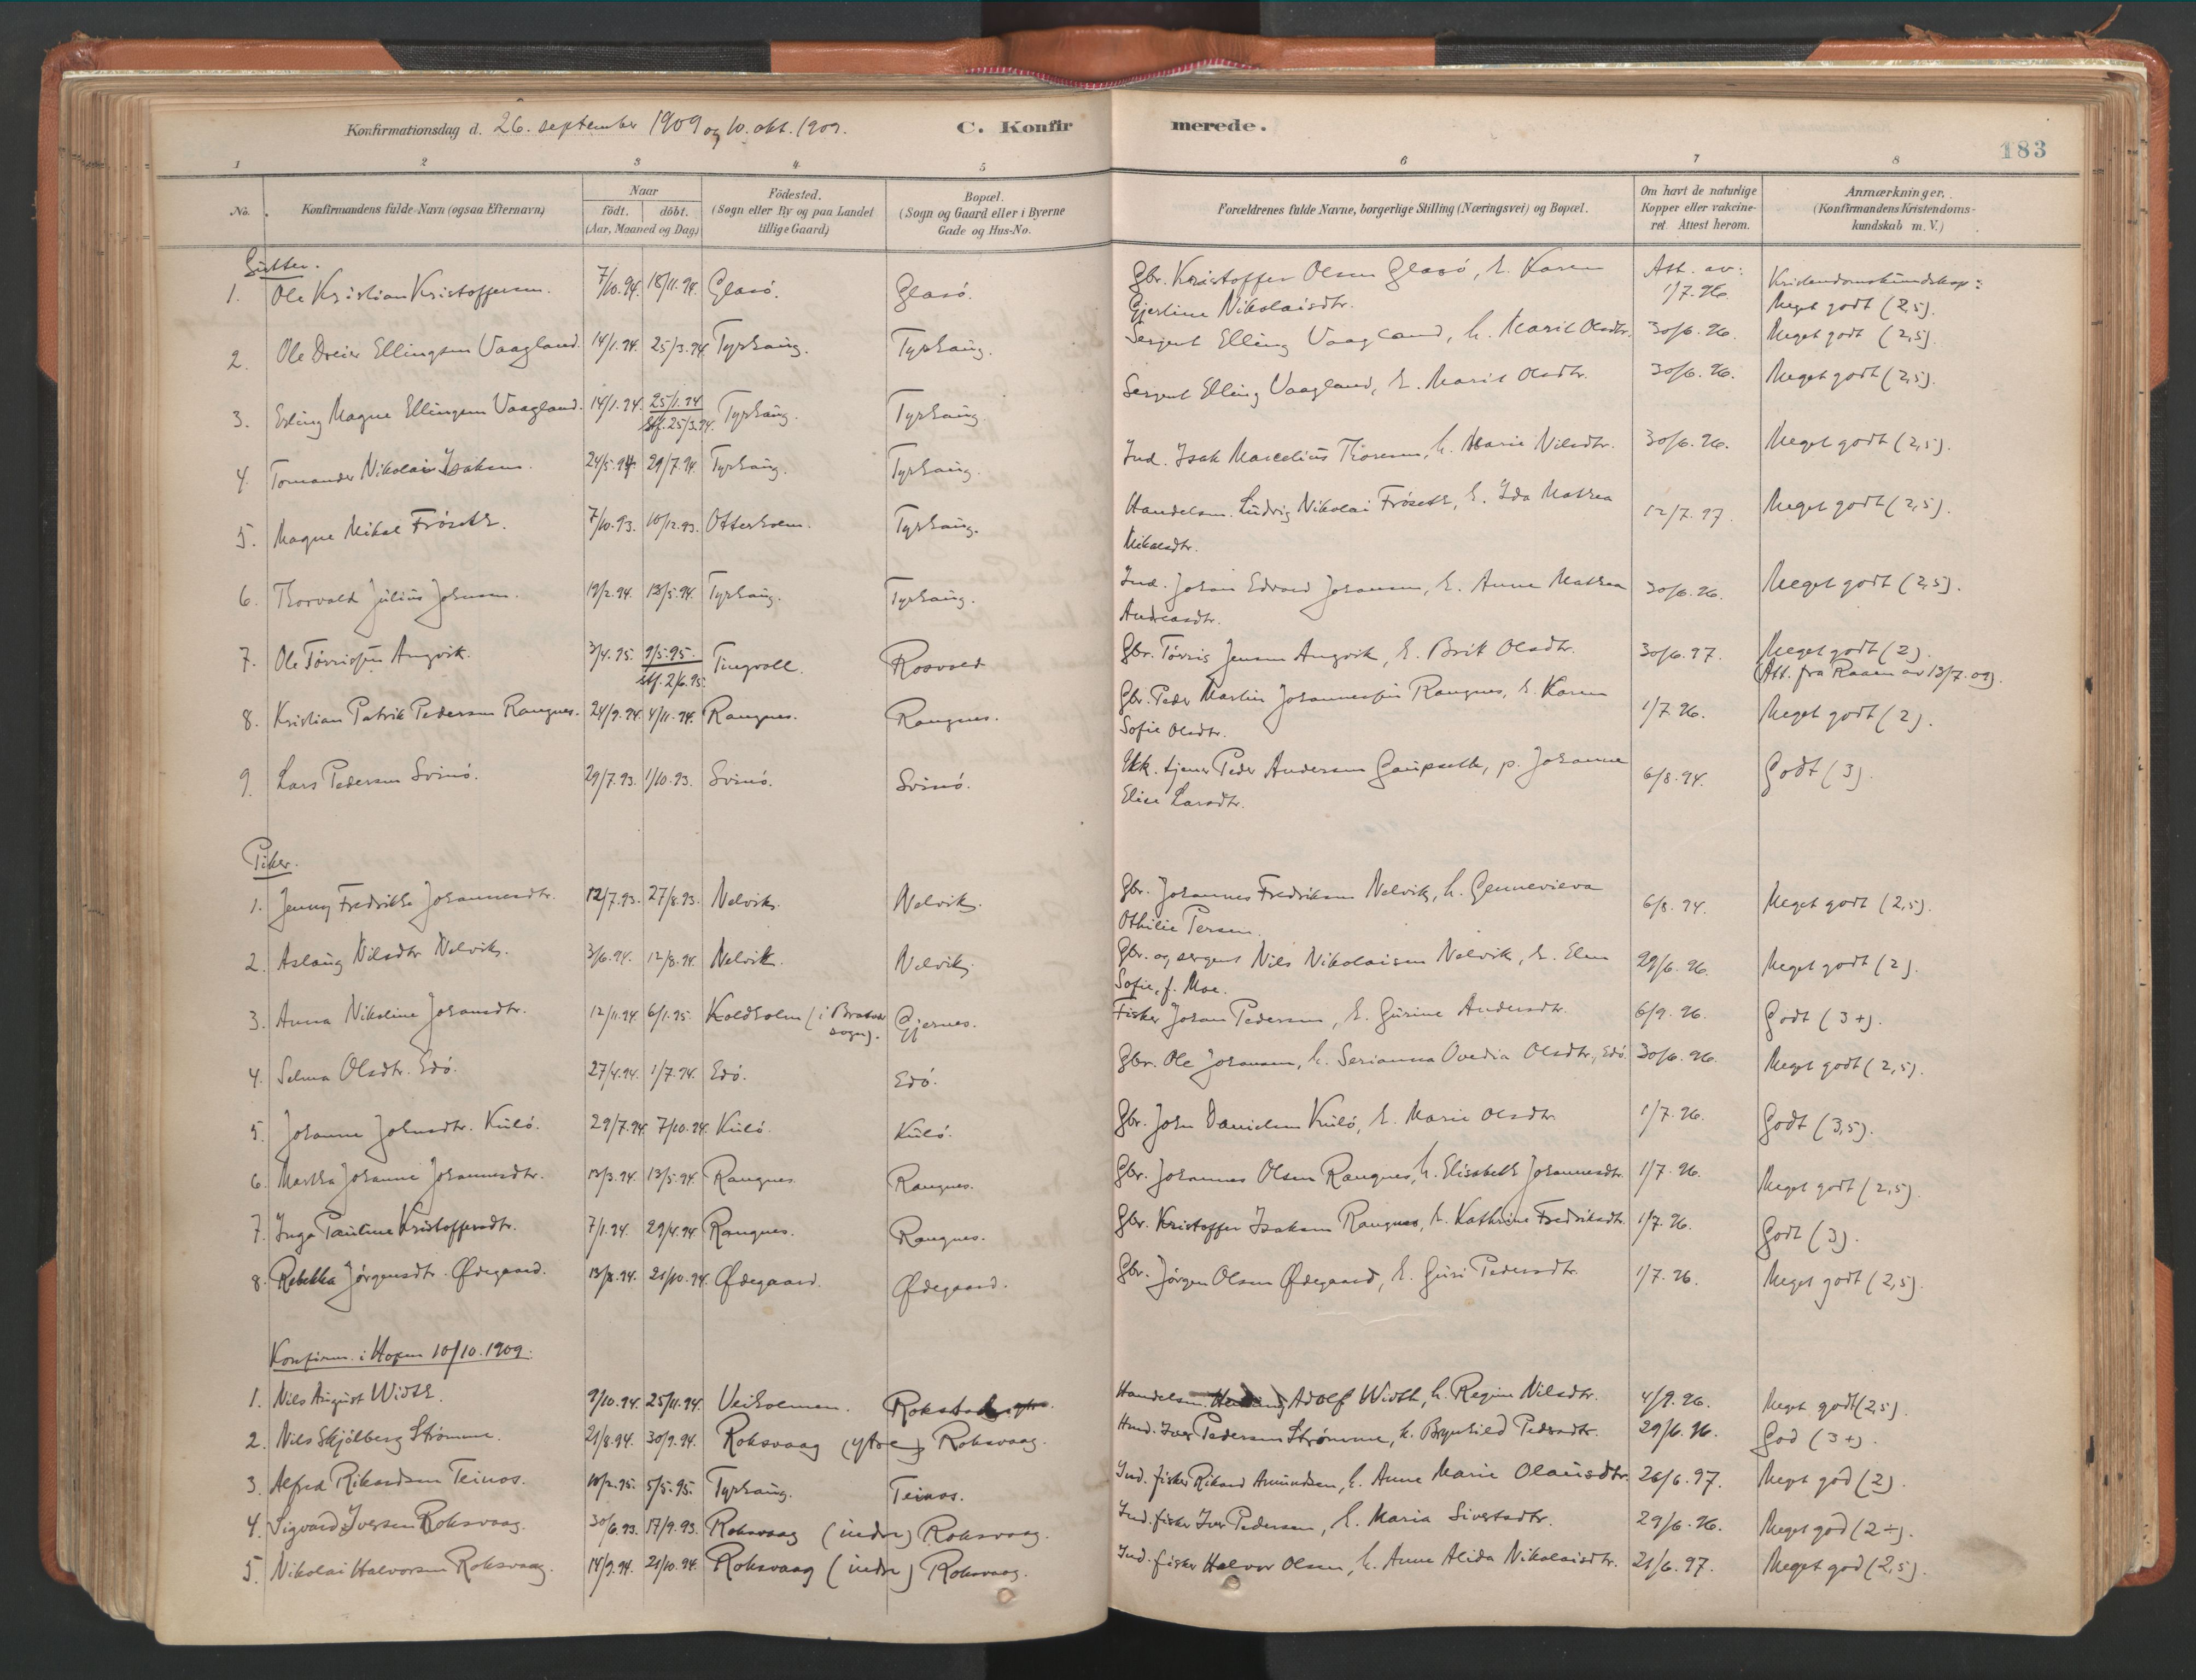 Konfirmationsdag d. 26. september 1909 og 10. okt. 1909. C. Konfirmerede.
183
1 2 3 4 5 6 7 8
No. Konfirmandens fulde Navn (ogsaa Efternavn) Naar födt. döbt. (Aar, Maaned og Dag) Födested. (Sogn eller By og paa Landet tillige Gaard) Bopæl. (Sogn og Gaard eller i Byerne Gade og Hus-No. Forældrenes fulde Navne, borgerlige Stilling (Næringsvei) og Bopæl. Om havt de naturlige Kopper eller vakcineret. Attest herom. Anmærkninger. (Konfirmandens Kristendomskundskab m. V.)
Gutter.
1. Ole Kristian Kristoffersen. 7/10.94. 18/11.94. Glasó. Glasó. Gbr. Kristoffer Olsen Glasó, h. Karen Att. av: Kristendomskundskap:
Gjertine Nikolaisdtr. 1/7.96. Meget godt (2,5).
2. Ole Dreier Ellingsen Vaagland. 14/1.94. 25/3.94. Tyrhaug. Tyrhaug. Sergent Elling Vaagland, h. Marit Olsdtr. 30/6.96. Meget godt (2,5).
3. Erling Magne Ellingsen Vaagland. 14/1.94. 25/1.94 Tyrhaug. Tyrhaug. Sergent Elling Vaagland, h. Marit Olsdtr. 30/6.96. Meget godt (2,5).
stf. 25/3.94.
4. Tomander Nikolai Isaksen. 24/5.94 29/7.94. Tyrhaug. Tyrhaug. Ind. Isak Marcelius Thoresen, h. Marie Nilsdtr. 30/6.96. Meget godt (2,5).
5. Magne Mikal Fróseth. 7/10.93. 10/12.93. Otterholm. Tyrhaug. Handelsm. Ludvig Nikolai Fróseth, h. Ida Mathea 12/7.97. Meget godt (2,5).
Mikalsdtr.
6. Thorvald Julius Johnsen. 19/2.94. 13/5.94. Tyrhaug. Tyrhaug. Ind. Johan Edvard Johansen, h. Anne Mathea 30/6.96. Meget godt (2,5).
Andreasdtr.
7. Ole Tórrissen Angvik. 3/4.95. 9/5.95. Tingvoll. Rosvold Gbr. Tórris Jensen Angvik, h. Brit Olsdtr. 30/6.97. Meget godt (2).
stf. 2/6.95. (Att. fra Raaen av 13/7.09).
8. Kristian Patrik Pedersen Rangnes. 24/9.94. 4/11.94. Rangnes. Rangnes. Gbr. Peder Martin Johannessen Rangnes, h. Karen 1/7.96. Meget godt (2).
Sofie Olsdtr.
9. Lars Pedersen Svinó. 29/7.93. 1/10.93. Svinó. Svinó. Ukk. tjener Peder Andersen Gaupseth, p. Johanne 6/8.94. Godt (3).
Elise Larsdtr.
Piker.
1. Jenny Fredrikke Johannesdtr. 12/7.93. 27/8.93. Nelvik. Nelvik. Gbr. Johannes Fredriksen Nelvik, h. Gennevieva 6/8.94. Meget godt (2,5).
Othilie Persen.
2. Aslaug Nilsdtr Nelvik. 3/6.94. 12/8.94. Nelvik. Nelvik. Gbr. og sergent Nils Nikolaisen Nelvik, h. Elen 29/6.96. Meget godt (2).
Sofie, f. Moe.
3. Anna Nikoline Johansdtr. 12/11.94 6/1.95. Koldholm (i Bratvær sogn). Gjernes. Fisker Johan Pedersen, h. Gurine Andersdtr. 6/9.96. Godt (3+).
4. Selma Olsdtr. Edó. 27/4.94. 1/7.94. Edó. Edó. Gbr. Ole Johansen, h. Serianna Ovedia Olsdtr, Edó. 30/6.96. Meget godt (2,5).
5. Johanne Johnsdtr. Kuló. 29/7.94. 7/10.94. Kuló. Kuló. Gbr. John Danielsen Kuló, h. Marie Olsdtr 1/7.96. Godt (3,5).
6. Martha Johanne Johannesdtr. 13/3.94. 13/5.94. Rangnes. Rangnes. Gbr. Johannes Olsen Rangnes, h. Elisabeth Johannesdtr. 1/7.96. Meget godt (2,5).
7. Inga Pauline Kristoffersdtr. 7/1.94. 29/4.94. Rangnes. Rangnes. Gbr. Kristoffer Isaksen Rangnes, h. Kathrine Fredriksdtr. 1/7.96. Godt (3).
8. Rebekka Jórgensdtr. Ødegaard. 13/8.94. 21/10.94. Ødegaard. Ødegaard. Gbr. Jórgen Olsen Ødegaard, h. Guri Pedersdtr. 1/7.96. Meget godt (2,5).
Konfirm. i Hopen 10/10.1909.
1. Nils August Width. 9/10.94. 25/11.94. Veiholmen. Rokstad Handelsm. Adolf Width, h. Regine Nilsdtr. 4/9.96. Meget godt (2,5).
2. Nils Skjólberg Strómme. 21/8.94. 30/9.94. Roksvaag (ytre) Roksvaag. Hmd. Iver Pedersen Strómme, h. Brynhild Pedersdtr. 29/6.96. God (3+).
3. Alfred Rikardsen Teinos. 10/2.95. 5/5.95. Tyrhaug. Teinos. Ind. fisker Rikard Amundsen, h. Anne Marie Olausdtr. 26/6.97. Meget god (2).
4. Sigvard Iversen Roksvaag. 30/6.93. 17/9.93. Roksvaag (indre) Roksvaag. Ind. fisker Iver Pedersen, h. Maria Sivertsdtr. 29/6.96. Meget god (2÷).
5. Nikolai Halvorsen Roksvaag. 14/9.94. 21/10.94. Roksvaag (indre) Roksvaag. Ind. fisker Halvor Olsen, h. Anne Alida Nikolaisdtr. 21/6.97. Meget god (2,5).